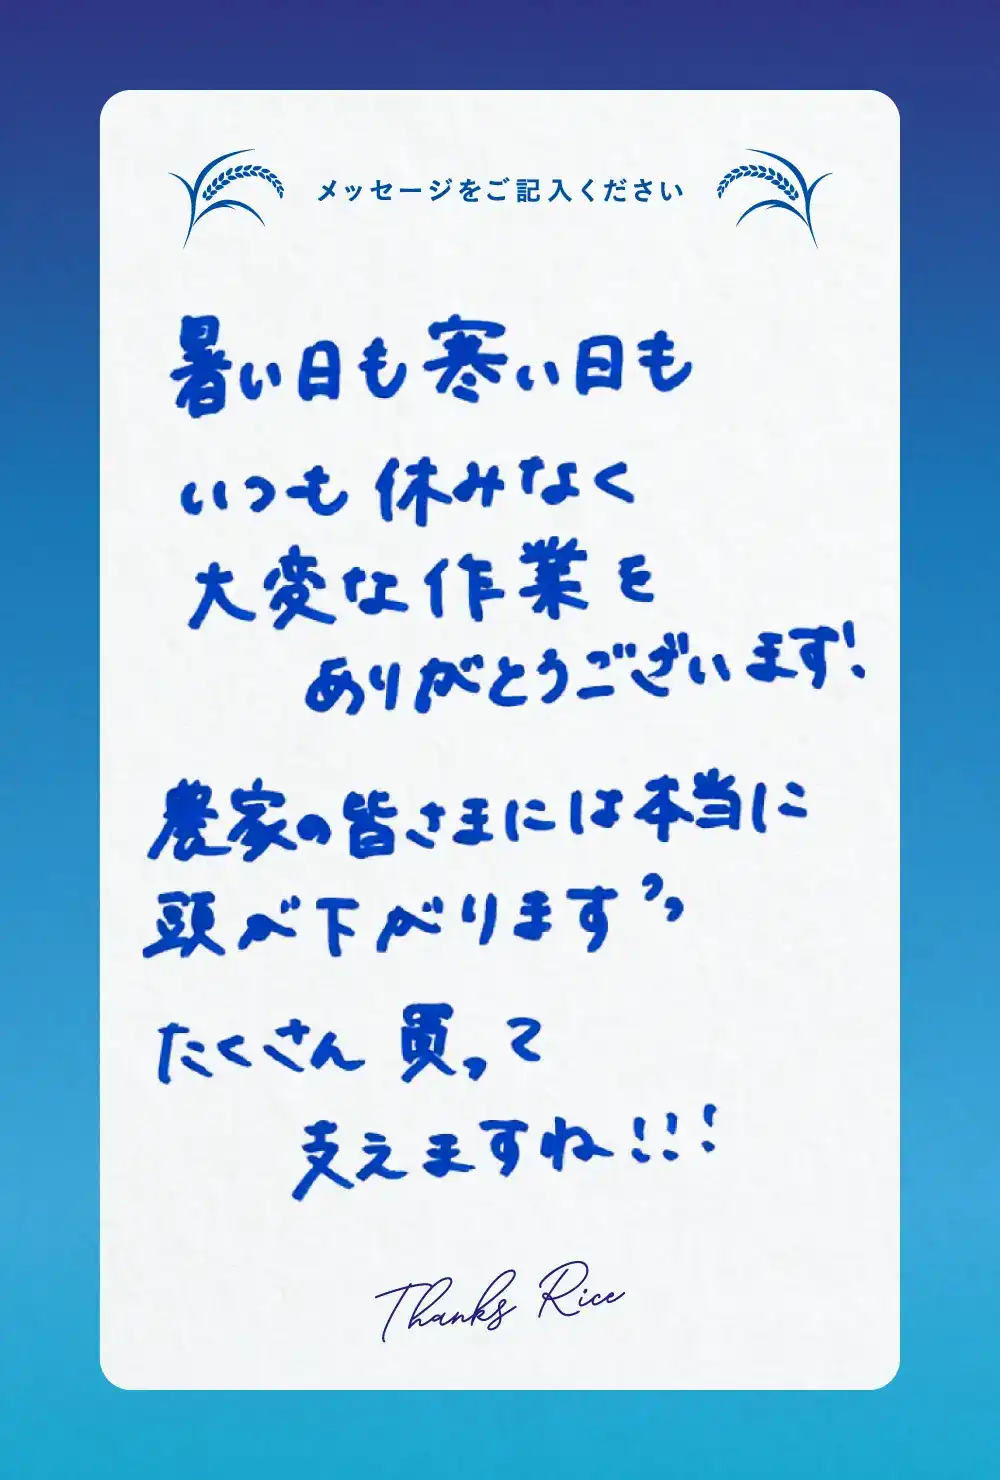 メッセージをご記入ください
暑い日も寒い日も
いつも休みなく
大変な作業を
ありがとうございます!
農家の皆さまには本当に
頭が下がります
たくさん買って
支えますね!!!
Thanks Rice